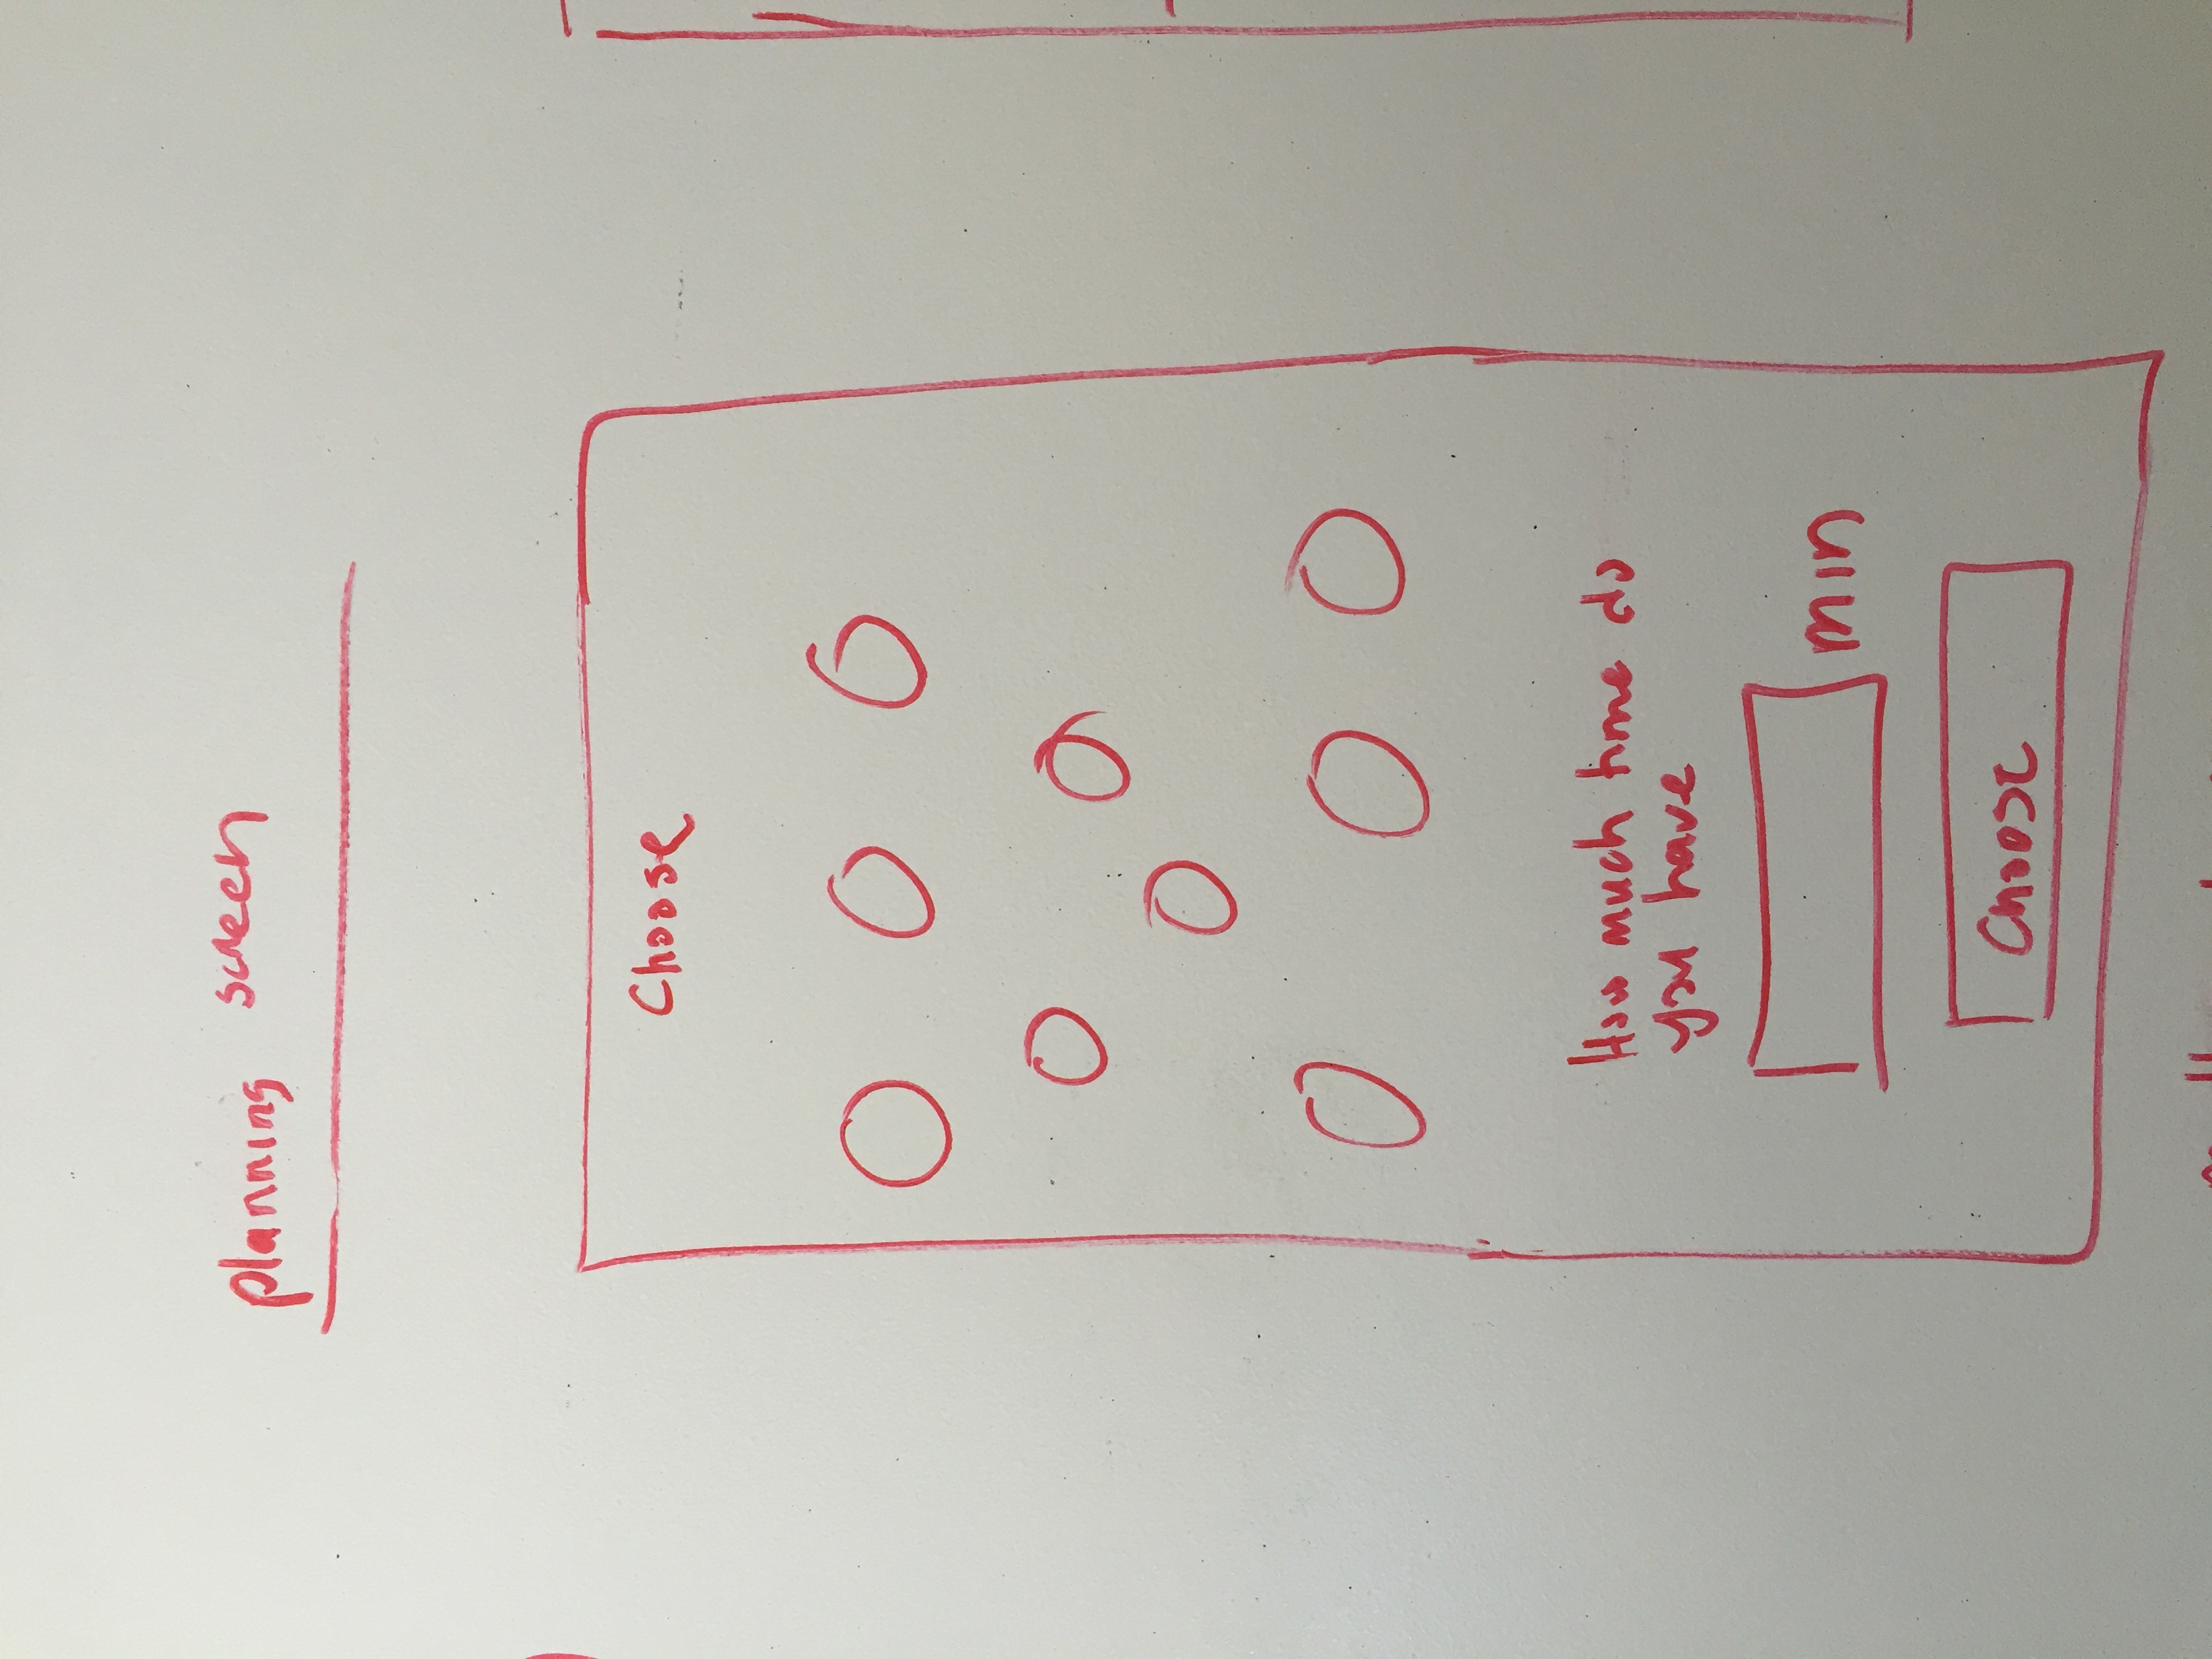 planning screen
Choose
How much time do
you have
min
Choose